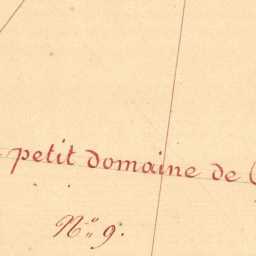 petit domaine de
N° 9.